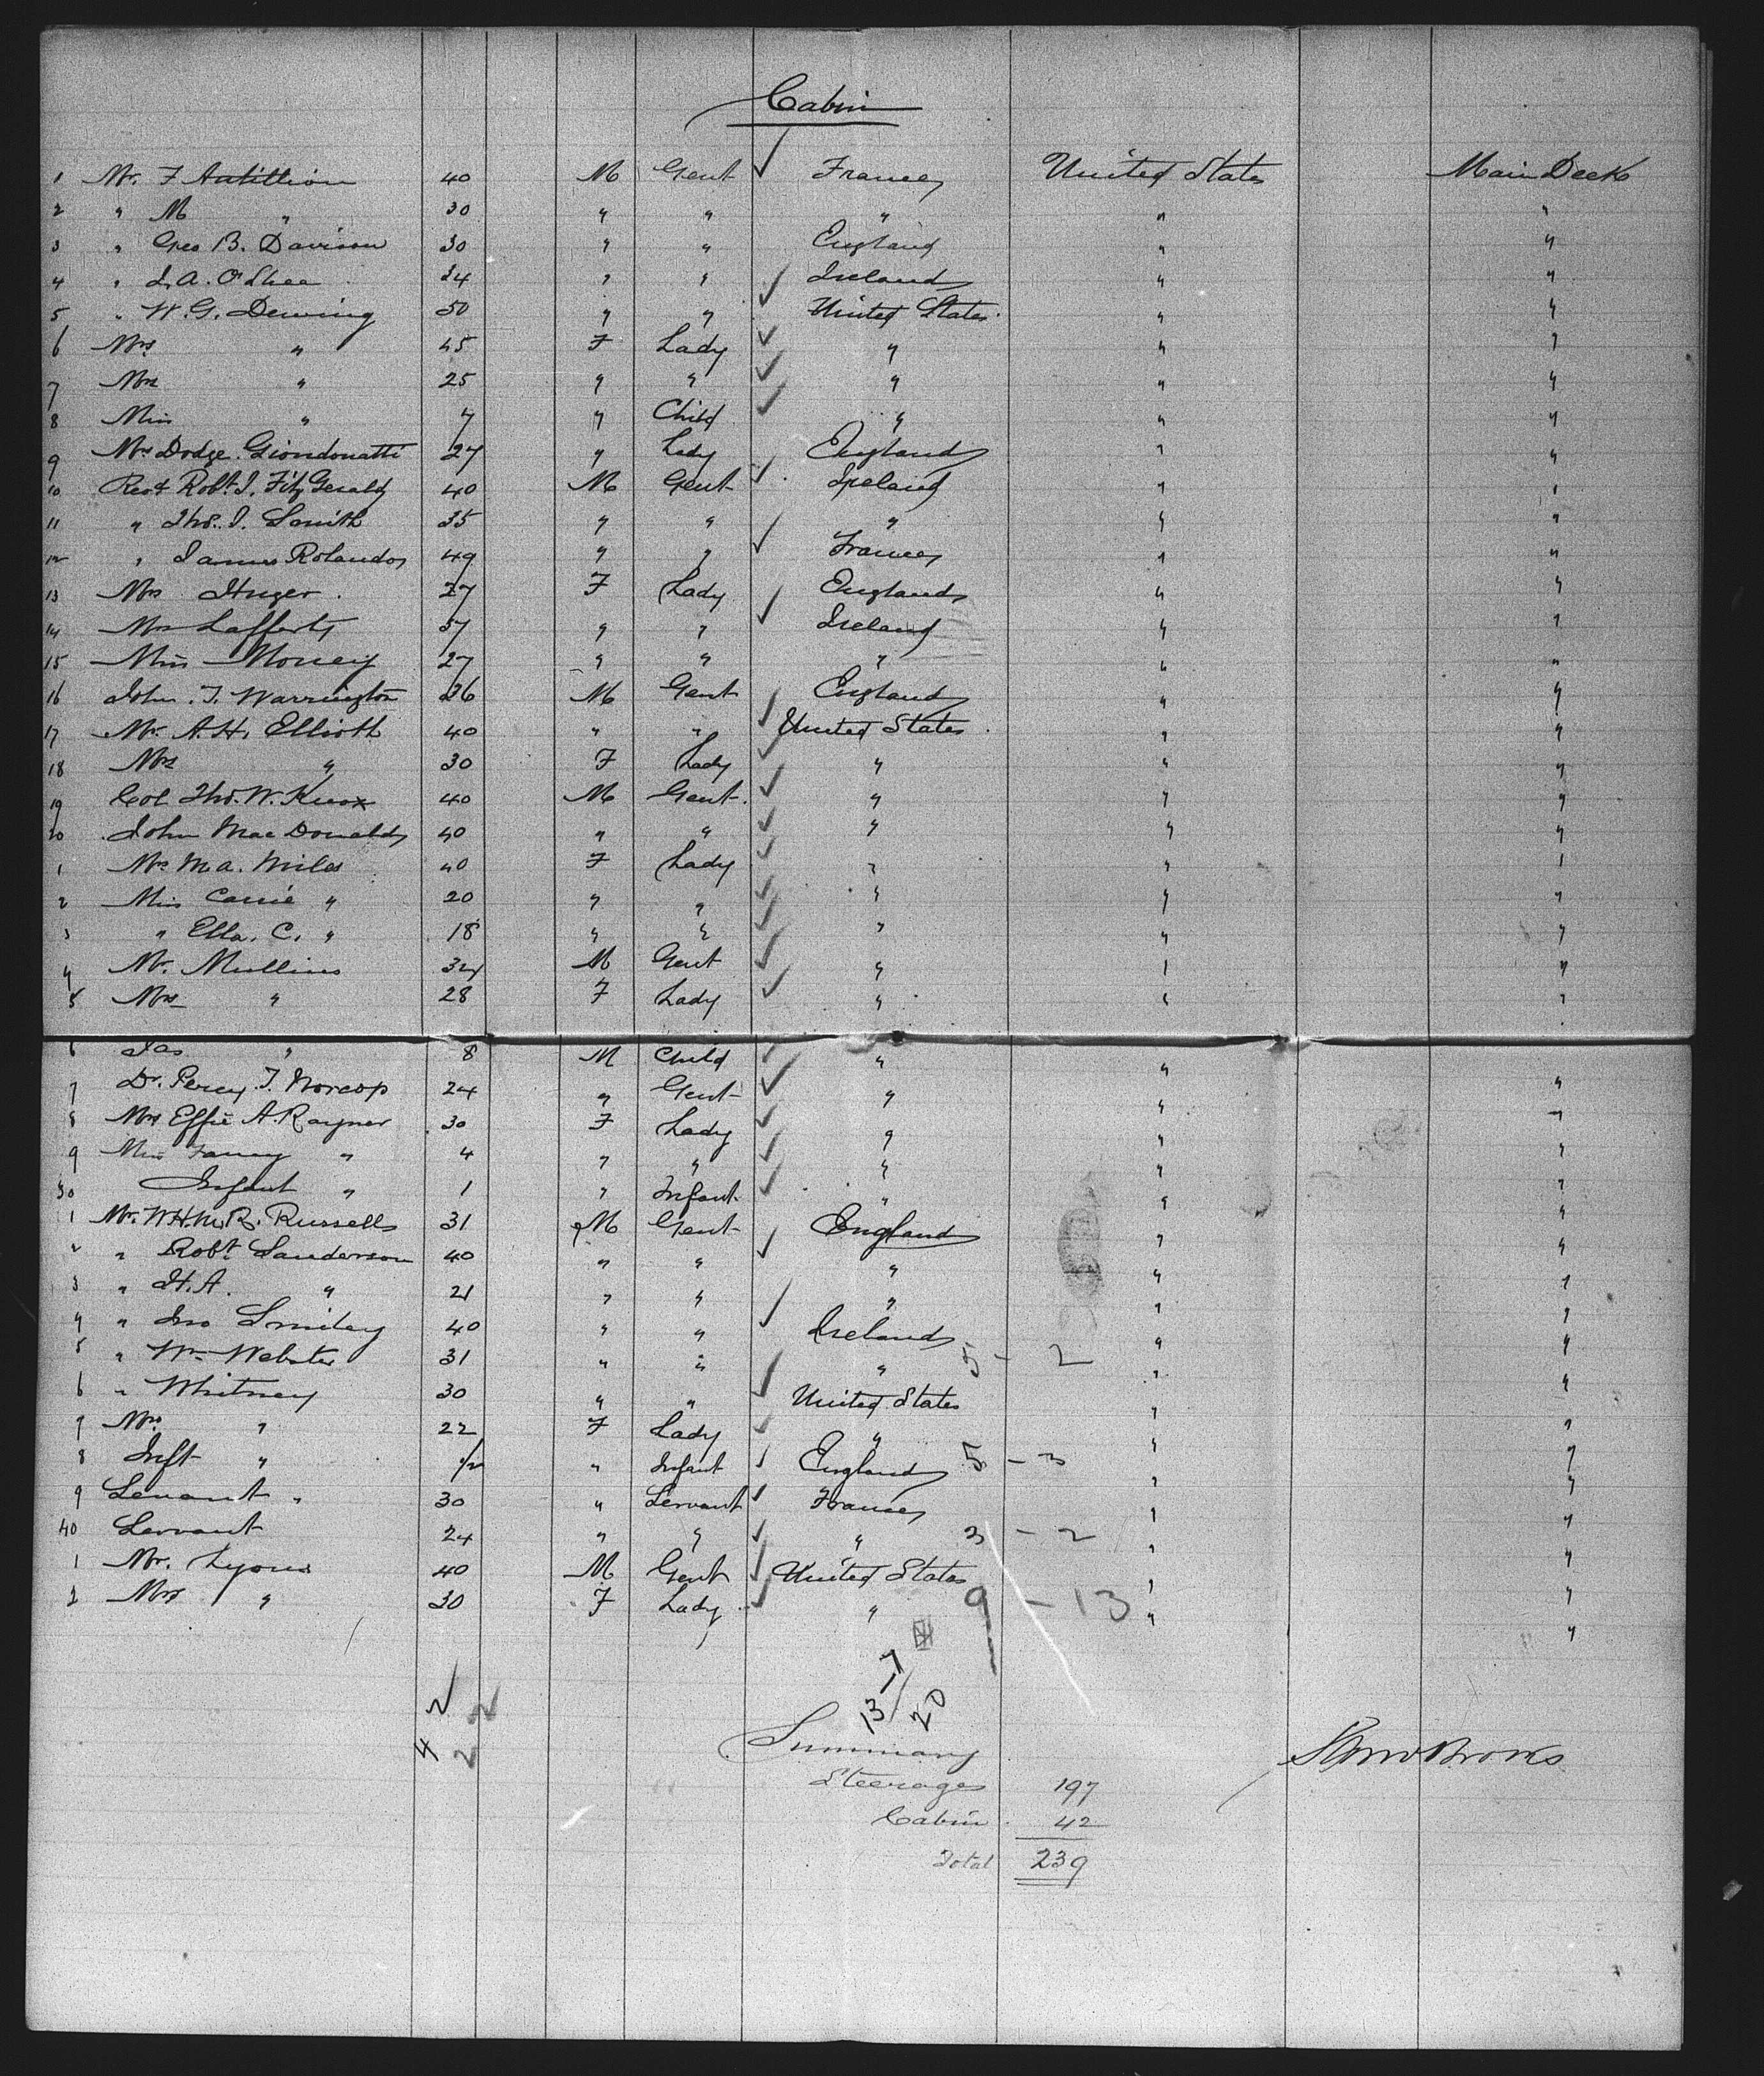 Cabin
1 Mr. F Antittion 40 M Gent France United States Main Deck
2 " M " 30 " " " " "
3 " Geo B. Davison 30 " " England " "
4 " J. A. O'Shea 24 " " Ireland " "
5 " W. G. Dewing 50 " " United States " "
6 Mrs " 45 F Lady " " "
7 Mrs " 25 " " " " "
8 Miss " 7 " Child " " "
9 Mrs Dodge Giondonatti 27 " Lady England " "
10 Revd Robt. J. Fitz Gerald 40 M Gent Ireland " "
11 " Thos. J. Smith 35 " " " " "
12 " James Rolando 49 " " France " "
13 Mrs Huger 27 F Lady England " "
14 Mrs Lafferty 57 " " Ireland " "
15 Miss Money 27 " " " " "
16 John. T. Warrington 36 M Gent England " "
17 Mr. A. H. Elliott 40 " " United States " "
18 Mrs " 30 F Lady " " "
19 Col Thos. W. Knox 40 M Gent " " "
20 John Mac Donald 40 " " " " "
1 Mrs M. A. Miles 40 F Lady " " "
2 Miss Carrie " 20 " " " " "
3 " Ella. C. " 18 " " " " "
4 Mr. Mullins 34 M Gent " " "
5 Mrs " 28 F Lady " " "
6 Jas " 8 M Child " " "
7 Dr. Percy. T. Norcop 24 " Gent " " "
8 Mrs Effie A. Rayner 30 F Lady " " "
9 Miss Fanny " 4 " " " " "
30 Infant " 1 " Infant " " "
1 Mr. W. H. M. R. Russells 31 M Gent England " "
2 " Robt Sanderson 40 " " " " "
3 " H. A. " 21 " " " " "
4 " Jno Smiley 40 " " Ireland " "
5 " Wm Webster 31 " " " 5 - 2 " "
6 " Whitney 30 " " United States " "
7 Mrs " 22 F Lady " " "
8 Inft " 1/2 " Infant England 5 - 3 " "
9 Servant " 30 " Servant France " "
40 Servant 24 " " " 3 - 2 " "
1 Mr. Lyons 40 M Gent United States " "
2 Mrs " 30 F Lady " 9 - 13 " "
13 - 7 / 20
42
Summary
Steerage 197
Cabin 42
Total 239